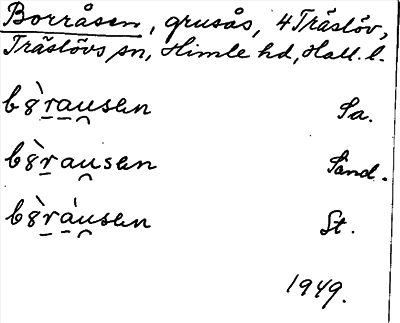 Borråsen, grusås, 4 Träslöv,
Träslövs sn, Himle hd, Hall. l.
b8̀rausen Sa.
b8̀rausen Sand.
b8̀ràusen St.
1949.